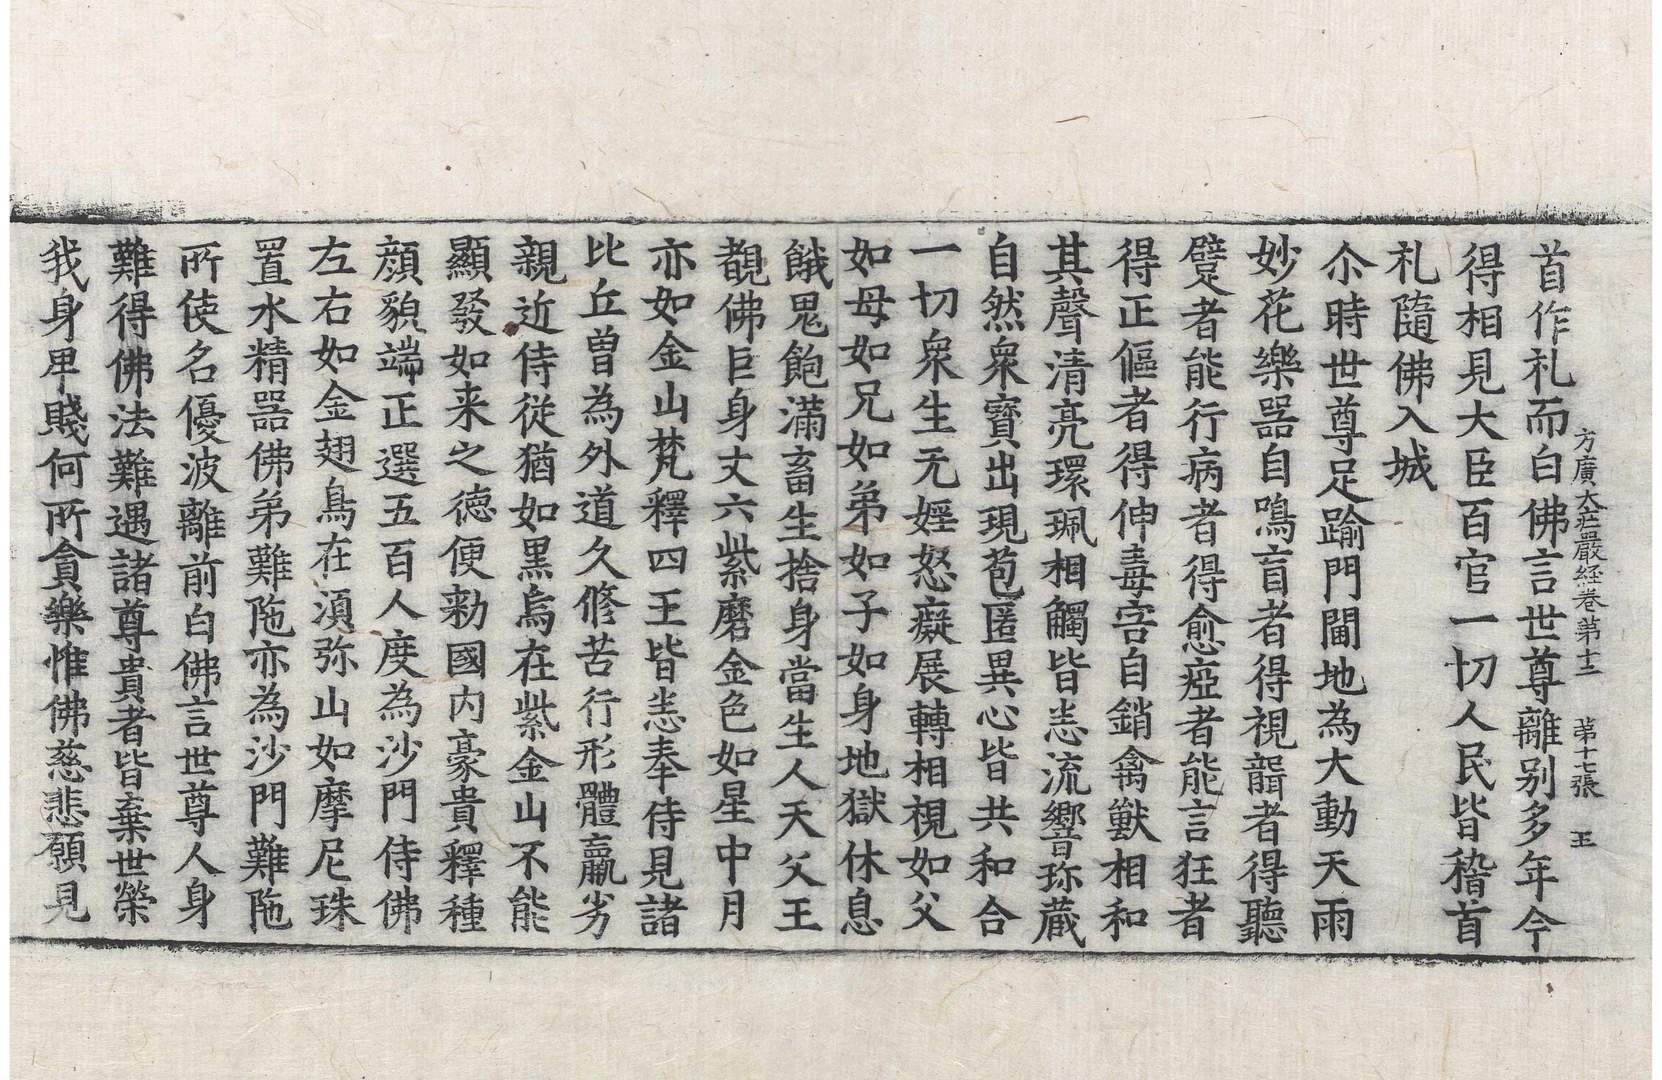 方廣大莊嚴経卷第十二　第十七張　王
首作礼而白佛言世尊離別多年今
得相見大臣百官一切人民皆稽首
礼隨佛入城
尒時世尊足踰門閫地為大動天雨
妙花樂器自鳴盲者得視聾者得聽
躄者能行病者得愈瘂者能言狂者
得正傴者得伸毒害自銷禽獸相和
其聲清亮環珮相觸皆悉流響珎蔵
自然衆寶出現苞匿異心皆共和合
一切衆生无婬怒癡展轉相視如父
如母如兄如弟如子如身地獄休息
餓鬼飽滿畜生捨身當生人天父王
覩佛巨身丈六紫磨金色如星中月
亦如金山梵釋四王皆悉奉侍見諸
比丘曾為外道久修苦行形體羸劣
親近侍從猶如黒烏在紫金山不能
顯發如来之德便勑國内豪貴釋種
顔貌端正選五百人度為沙門侍佛
左右如金翅鳥在湏弥山如摩尼珠
置水精器佛弟難陁亦為沙門難陁
所使名優波離前白佛言世尊人身
難得佛法難遇諸尊貴者皆棄世榮
我身卑賤何所貪樂惟佛慈悲願見